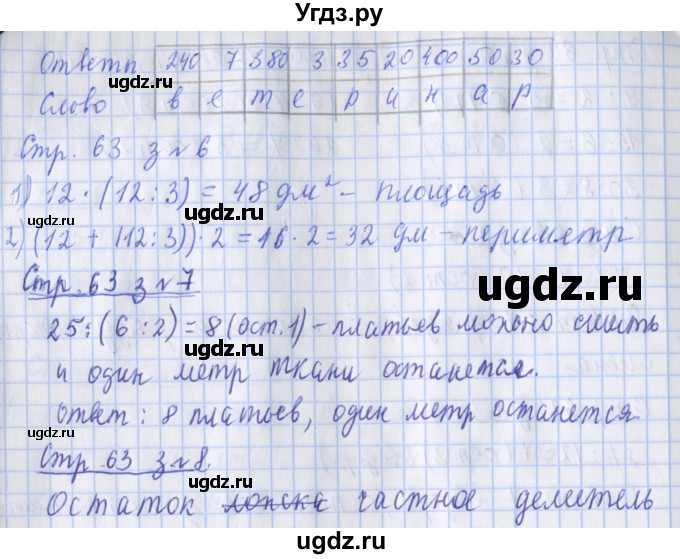 Угдз.ру
Ответы 240 7 380 3 35 20 400 50 30
Слово в е т е р и н а р
Стр. 63 з №6
1) 12 · (12 : 3) = 48 дм² – площадь
2) (12 + (12 : 3)) · 2 = 16 · 2 = 32 дм – периметр
Стр. 63 з №7
25 : (6 : 2) = 8 (ост. 1) – платьев можно сшить
и один метр ткани останется.
Ответ: 8 платьев, один метр останется
Стр 63 з №8.
Остаток частное делитель
ugdz.ru
ugdz.ru
ugdz.ru
ugdz.ru
ugdz.ru
ugdz.ru
ugdz.ru
ugdz.ru
ugdz.ru
ugdz.ru
ugdz.ru